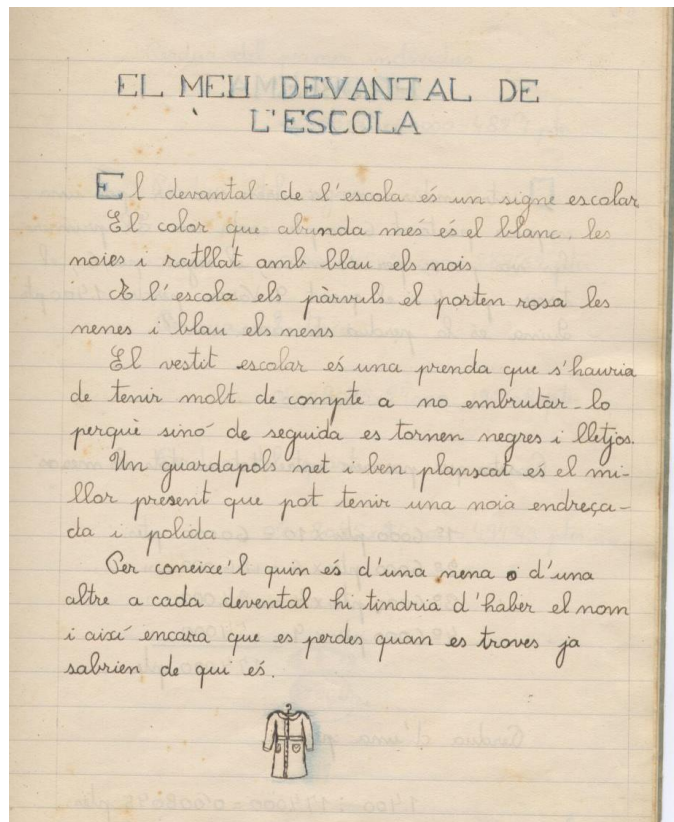 EL MEU DEVANTAL DE
L'ESCOLA
El devantal de l'escola és un signe escolar
El color que abunda més és el blanc. les
noies i ratllat amb blau els nois
A l'escola els pàrvuls el porten rosa les
nenes i blau els nens
El vestit escolar és una prenda que s'hauria
de tenir molt de compte a no embrutar-lo
perquè sinó de seguida es tornen negres i lletjos.
Un guardapols net i ben planxat és el mi-
llor present que pot tenir una noia endreça-
da i polida
Per coneixe'l quin és d'una nena o d'una
altre a cada devental hi tindria d'haber el nom
i així encara que es perdes quan es troves ja
sabrien de qui és.